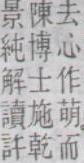 去心作萌而
陳博士施乾
景純解讀許